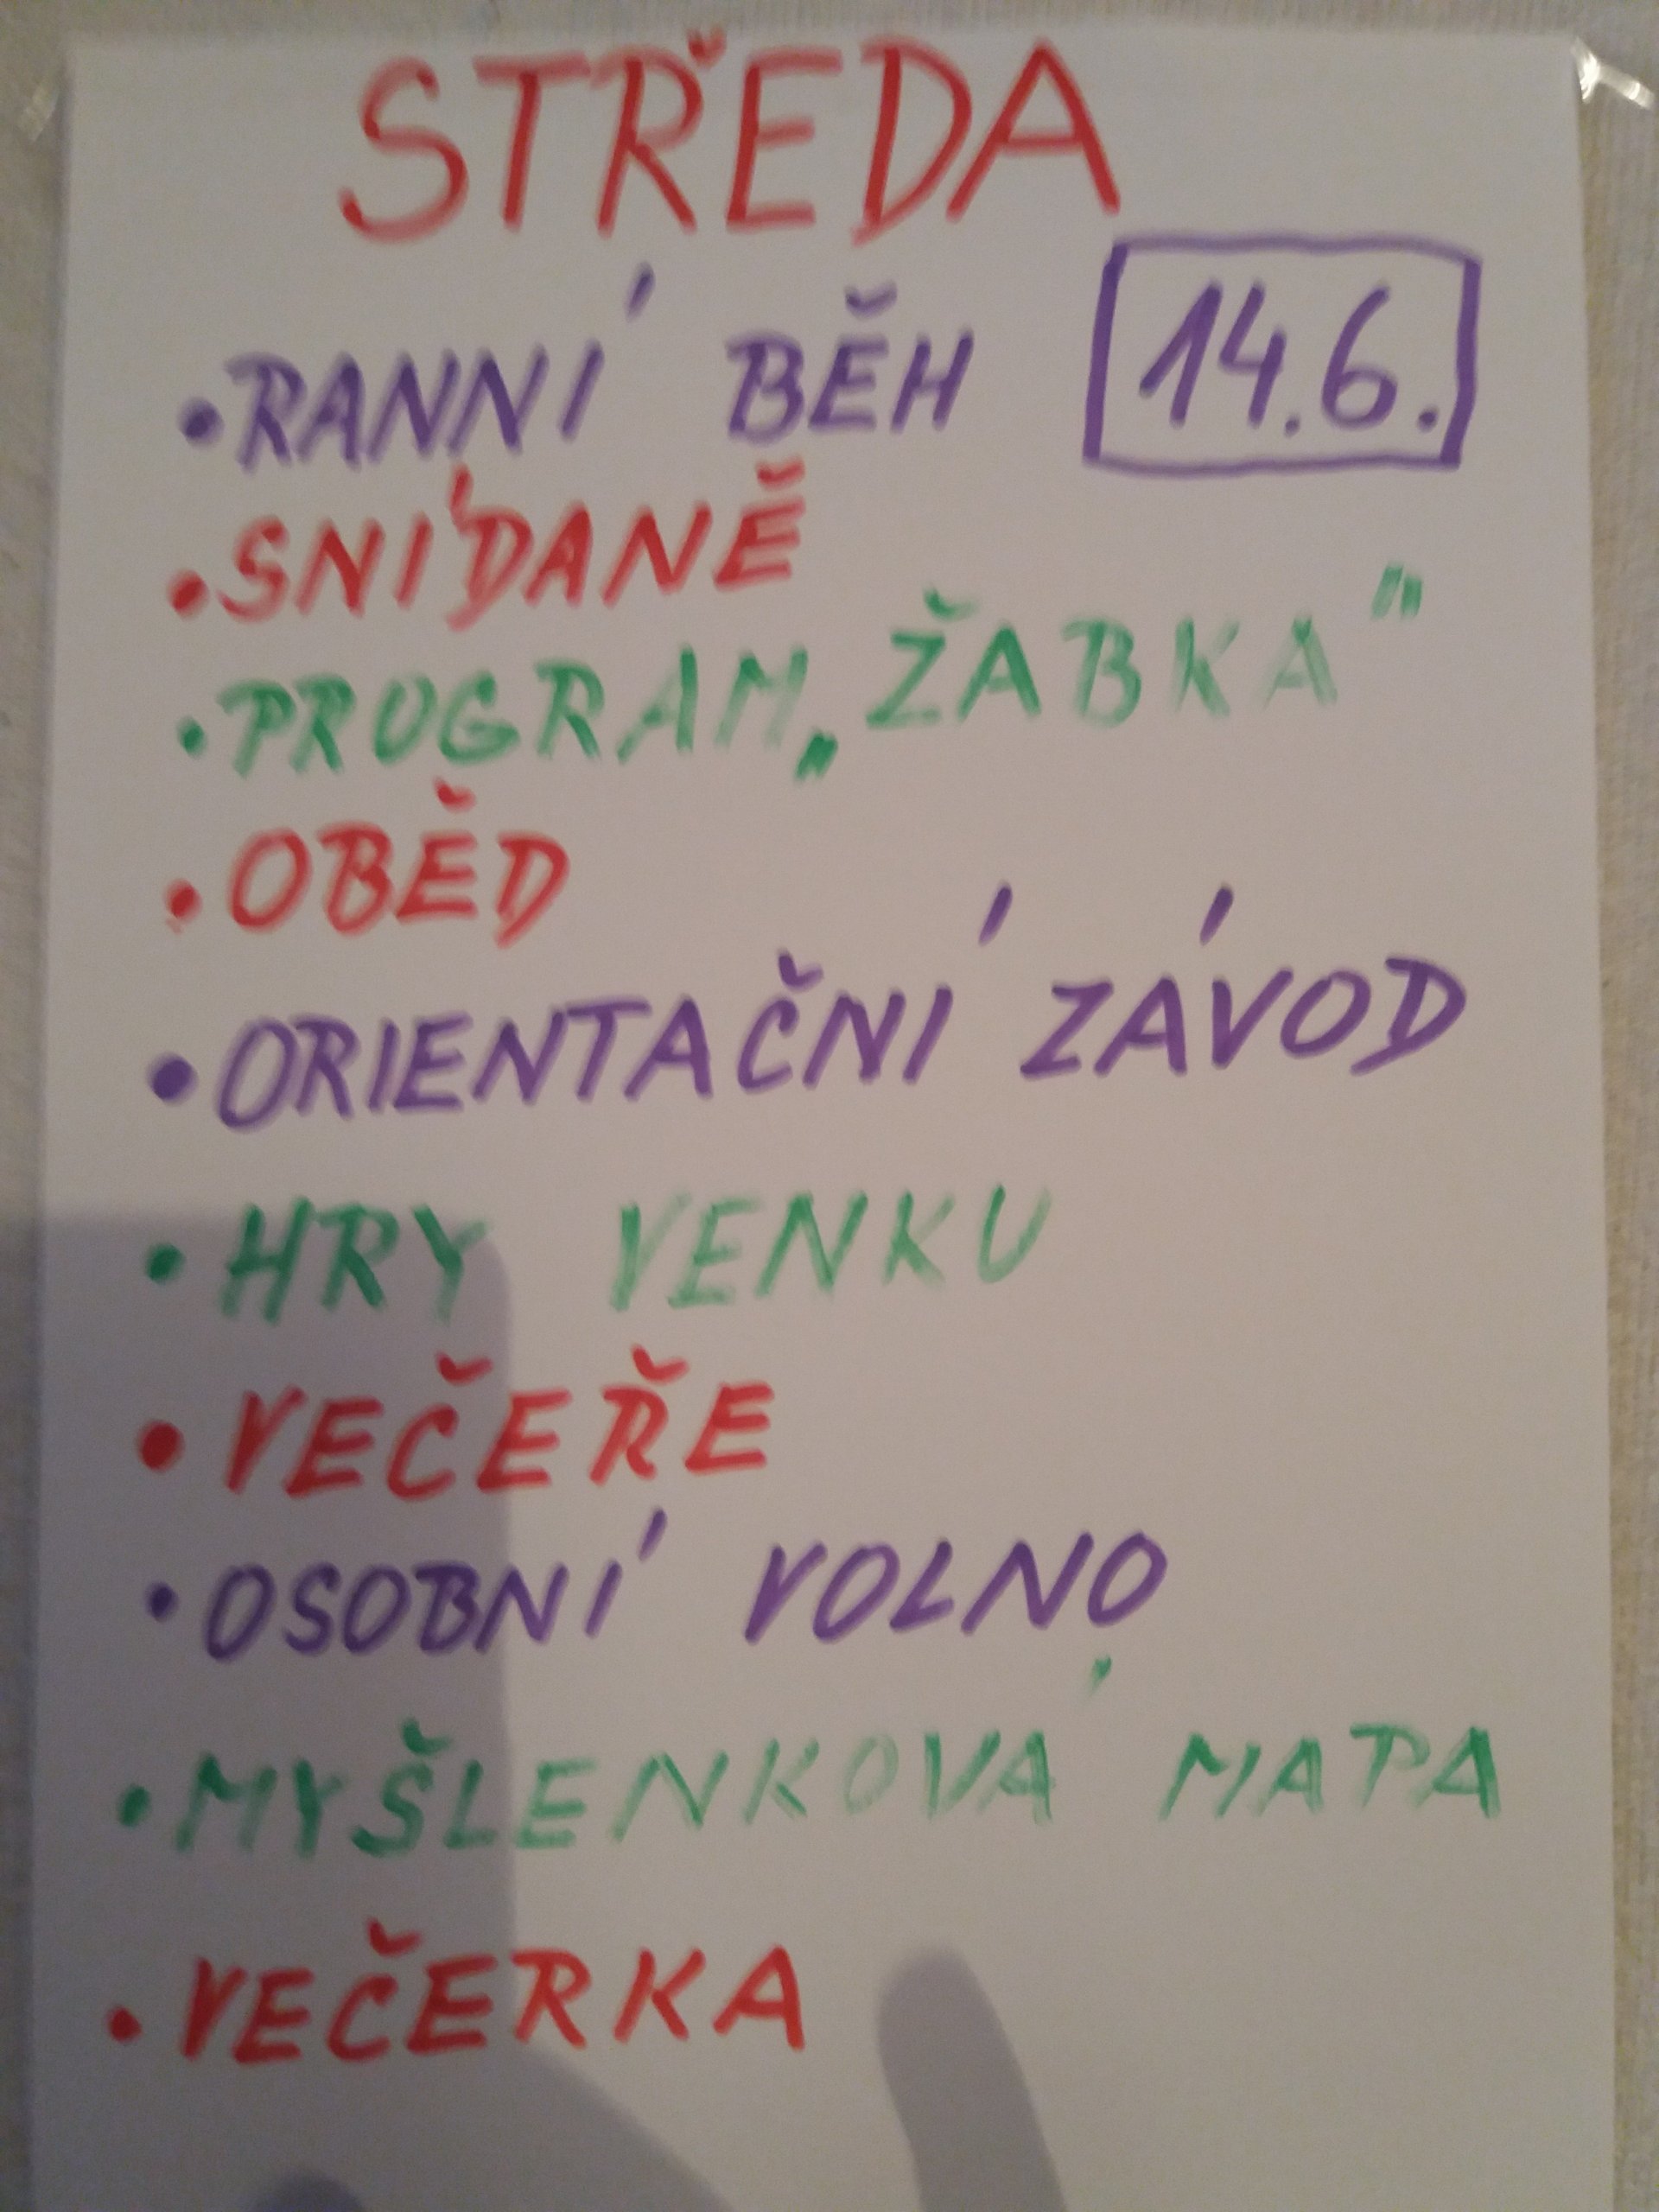 STŘEDA
• RANNÍ BĚH
14.6.
• SNÍDANĚ
• PROGRAM „ŽABKA"
• OBĚD
• ORIENTAČNÍ ZÁVOD
• HRY VENKU
• VEČEŘE
• OSOBNÍ VOLNO
• MYŠLENKOVÁ MAPA
• VEČERKA